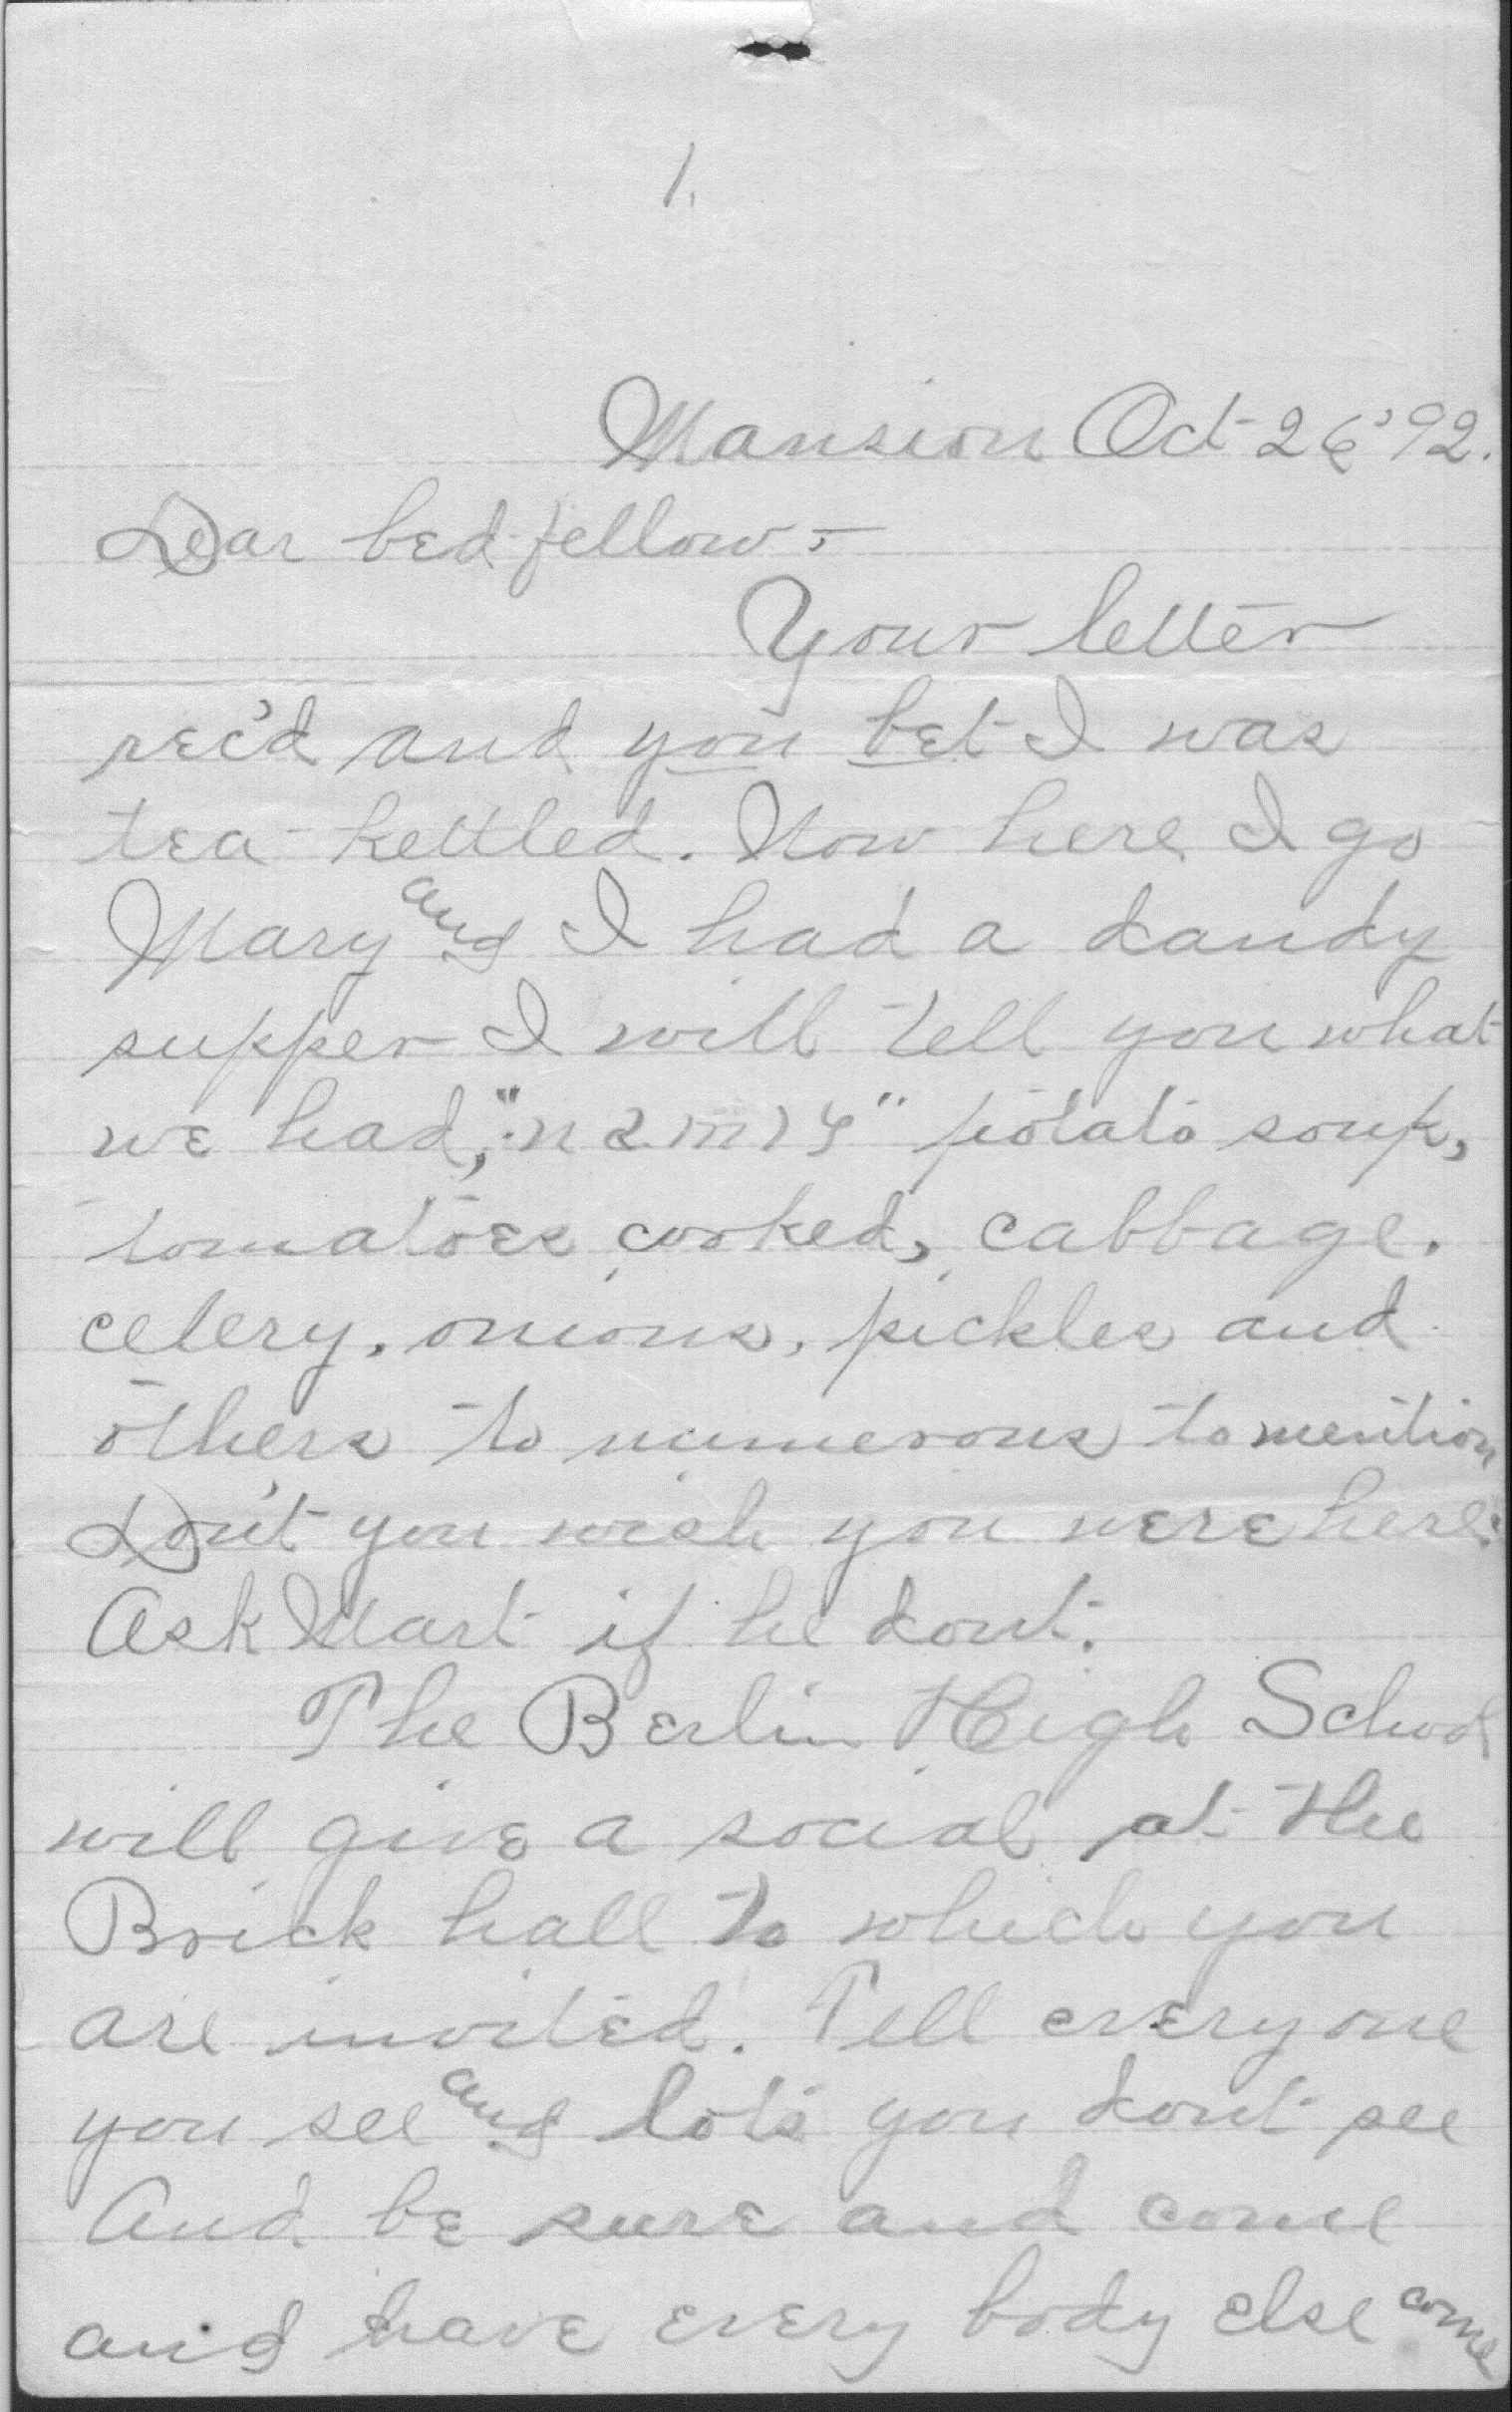 1.
Mansion Oct 26 '92.
Dear bed-fellow -
Your letter
rec'd and you bet I was
tea-kettled. Now here I go
Mary and I had a dandy
supper I will tell you what
we had, potato soup,
tomatoes cooked, cabbage.
celery, onions, pickles and
others to numerous to mention
Don't you wish you were here.
Ask Mart if he dont.
The Berlin High School
will give a social at the
Brick hall to which you
are invited. Tell everyone
you see and lots you dont see
And be sure and come
and have every body else come